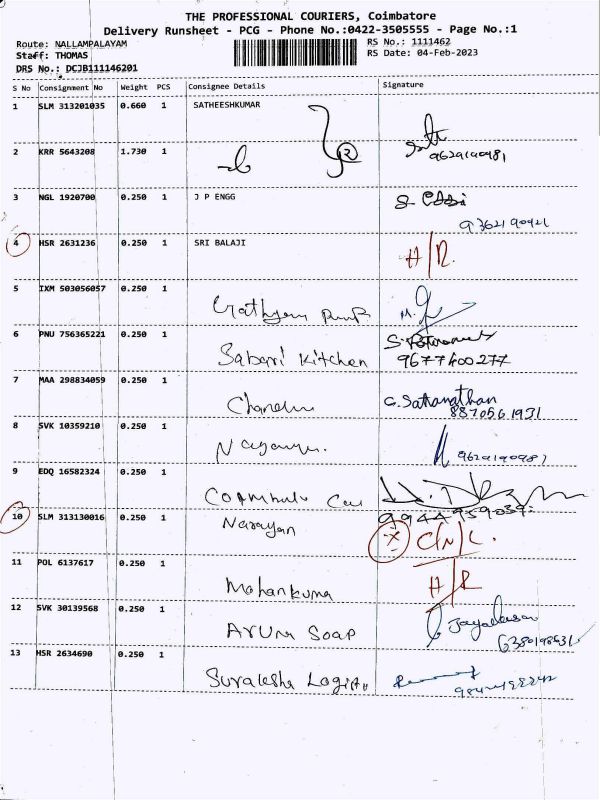 THE PROFESSIONAL COURIERS, Coimbatore
Delivery Runsheet - PCG - Phone No.:0422-3505555 - Page No.:1
Route: NALLAMPALAYAM
RS No.: 1111462
Staff: THOMAS
RS Date: 04-Feb-2023
DRS No.: DCJB111146201
S No Consignment No Weight PCS Consignee Details Signature
1 SLM 313201035 0.660 1 SATHEESHKUMAR
2 KRR 5643208 1.730 1
9629190981
3 NGL 1920700 0.250 1 J P ENGG
9362190421
4 HSR 2631236 0.250 1 SRI BALAJI
H/R.
5 IXM 503056057 0.250 1
6 PNU 756365221 0.250 1
Sabari Kitchen 9677400277
7 MAA 298834059 0.250 1
G. Sattanathan
8870561931
8 SVK 10359210 0.250 1
9 EDQ 16582324 0.250 1
10 SLM 313130016 0.250 1 Narayan
C/N/L.
11 POL 6137617 0.250 1
Mohankuma H/R
12 SVK 30139568 0.250 1
Aruna Soap
13 HSR 2634690 0.250 1